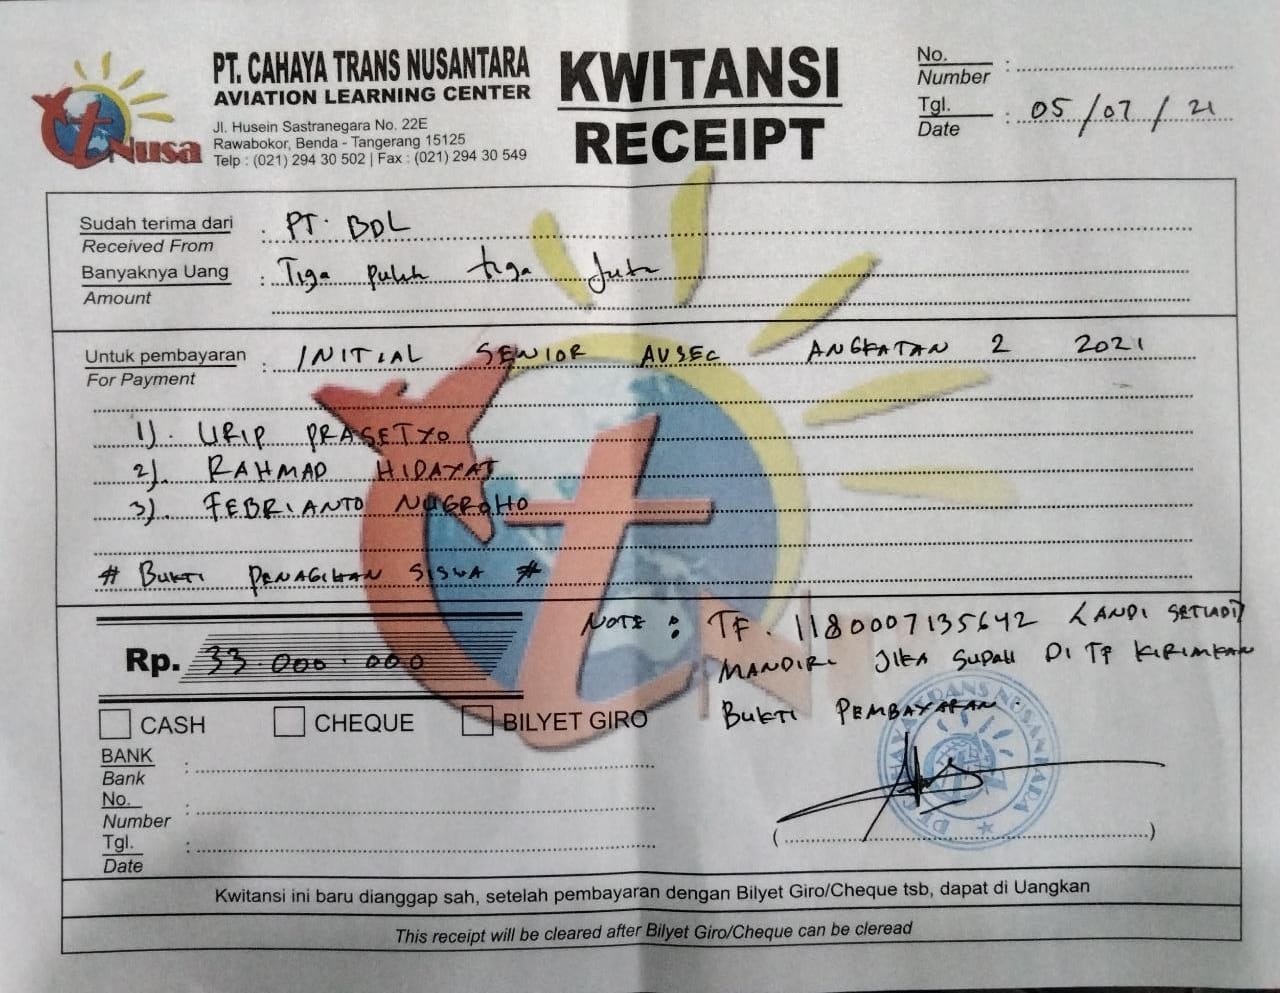 PT. CAHAYA TRANS NUSANTARA
AVIATION LEARNING CENTER
Jl. Husein Sastranegara No. 22E
Rawabokor, Benda - Tangerang 15125
Telp : (021) 294 30 502 | Fax : (021) 294 30 549
tNusa
KWITANSI
RECEIPT
No.
Number :
Tgl.
Date : 05/07/21
Sudah terima dari : PT. BDL
Received From
Banyaknya Uang : Tiga puluh tiga Juta
Amount
Untuk pembayaran : INITIAL SENIOR AVSEC ANGKATAN 2 2021
For Payment
1). URIP PRASETYO
2). RAHMAD HIDAYAT
3). FEBRIANTO NUGROHO
# BUKTI PENAGIHAN SISWA #
NOTE : TF. 1180007135642 (ANDI SETIADI)
MANDIRI JIKA SUDAH DI TF KIRIMKAN
BUKTI PEMBAYARAN.
Rp. 33.000.000
CASH CHEQUE BILYET GIRO
BANK
Bank :
No.
Number :
Tgl.
Date :
PT CAHAYA TRANS NUSANTARA
(....................)
Kwitansi ini baru dianggap sah, setelah pembayaran dengan Bilyet Giro/Cheque tsb, dapat di Uangkan
This receipt will be cleared after Bilyet Giro/Cheque can be cleread